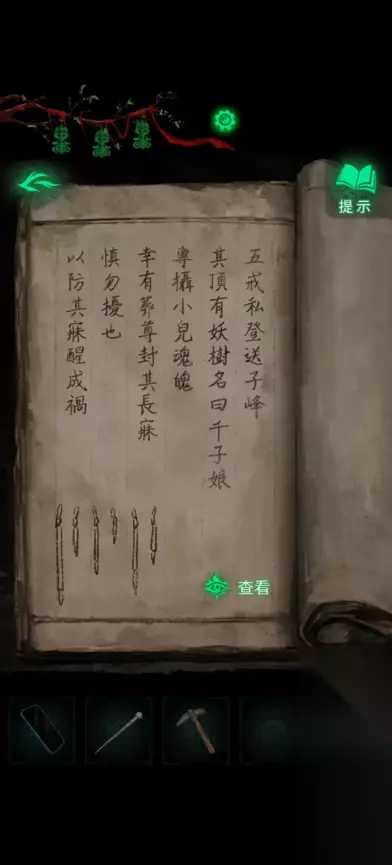 提示
五戒私登送子峰
其頂有妖樹名曰千子娘
專攝小兒魂魄
幸有葬尊封其長寐
慎勿擾也
以防其寐醒成禍
查看